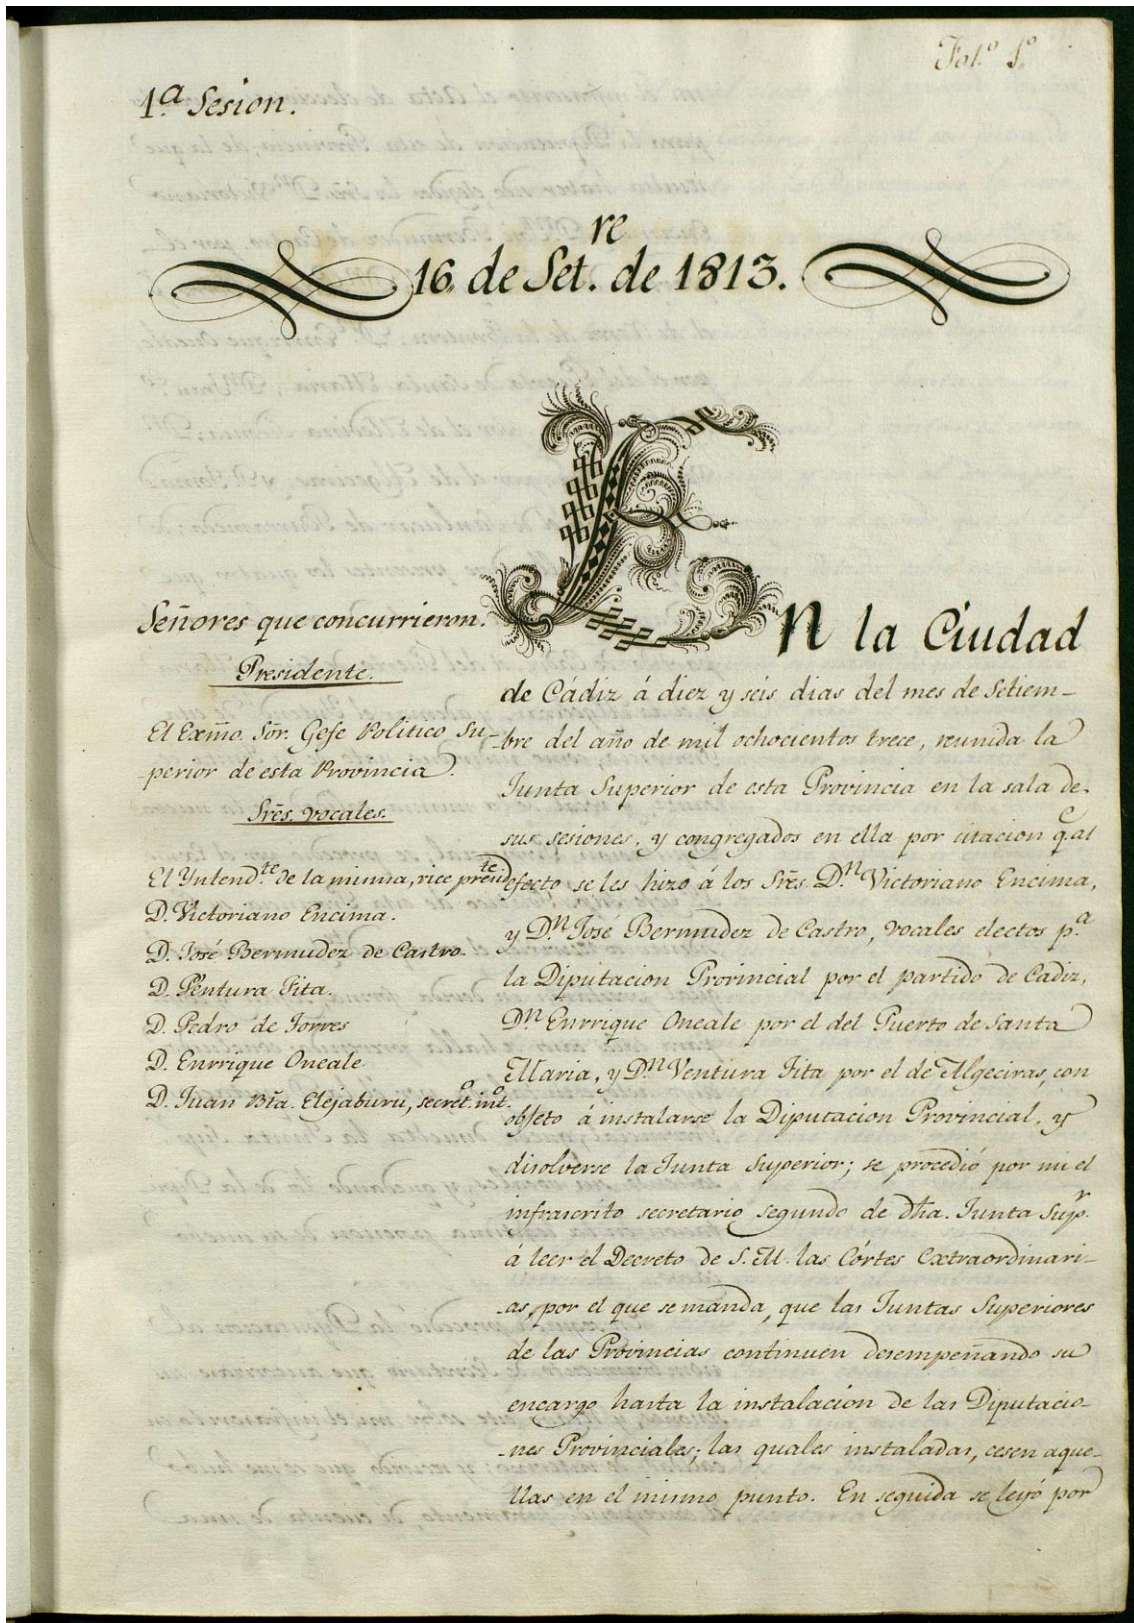 Fol.º 1.º
1.ª Sesion.
16. de Set.re de 1813.
Señores que concurrieron.
Presidente.
El Exmo. Sõr. Gefe Politico Su-
-perior de esta Provincia.
Sres. vocales.
El Yntend.te de la misma, vice presid.te
D. Victoriano Encima.
D. José Bermudez de Castro.
D. Ventura Fita.
D. Pedro de Torres
D. Enrrique Oneale.
D. Juan Bta. Elejaburu, secret.º int.º
En la Ciudad
de Cádiz á diez y seis dias del mes de Setiem-
-bre del año de mil ochocientos trece, reunida la
Junta Superior de esta Provincia en la sala de
sus sesiones, y congregados en ella por citacion q.e al
efecto se les hizo á los Sres. D.n Victoriano Encima,
y D.n José Bermudez de Castro, vocales electos p.a
la Diputacion Provincial por el partido de Cadiz,
D.n Enrrique Oneale por el del Puerto de Santa
Maria, y D.n Ventura Fita por el de Algeciras, con
objeto á instalarse la Diputacion Provincial, y
disolverse la Junta Superior; se procedió por mi el
infrascrito secretario segundo de dha. Junta Sup.r
á leer el Decreto de S. M. las Córtes Extraordinari-
-as, por el que se manda, que las Juntas Superiores
de las Provincias continuen desempeñando su
encargo hasta la instalacion de las Diputacio-
-nes Provinciales; las quales instaladas, cesen aque-
llas en el mismo punto. En seguida se leyó por